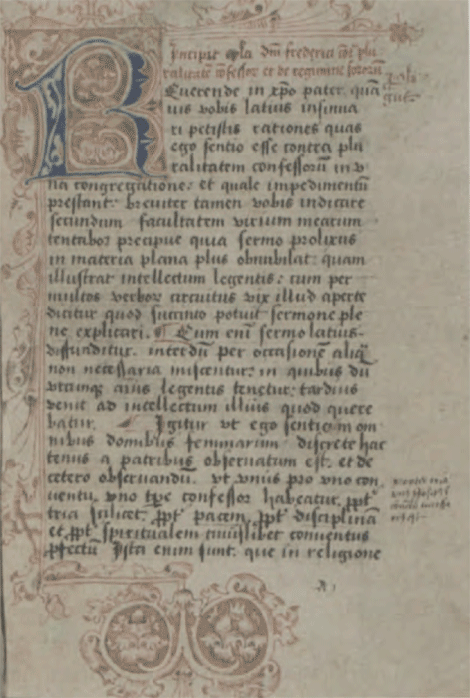 Incipit epla dni frederici
ralitate confessor et de regimine sororum
Reuerende in xpo pater quam
uis vobis latius insinua
ri petistis rationes quas
ego sentio esse contra plu
ralitatem confessoru in v
na congregatione: et quale impedimentu
prestant: breuiter tamen vobis indicare
secundum facultatem virium mearum
tentabor precipue quia sermo prolixus
in materia plana plus obnubilat: quam
illustrat intellectum legentis: cum per
multos verbor circuitus vix illud aperte
dicitur quod succinto potuit sermone ple
ne explicari. ¶ Cum eni sermo latius
diffunditur. interdu per occasione aliq
non necessaria miscentur: in quibus du
vtcunqz aius legentis tenetur: tardius
venit ad intellectum illius quod quere
batur. Igitur vt ego sentio in om
nibus domibus feminarum discrete hac
tenus a patribus obseruatum est. et de
cetero obseruandu. vt vnius pro vno con
uentu, vno tpe confessor habeatur, ppt
tria scilicet, ppt pacem, ppt disciplina
et ppt spiritualem cuiuslibet conuentus
pfectu Ista enim sunt. que in religione